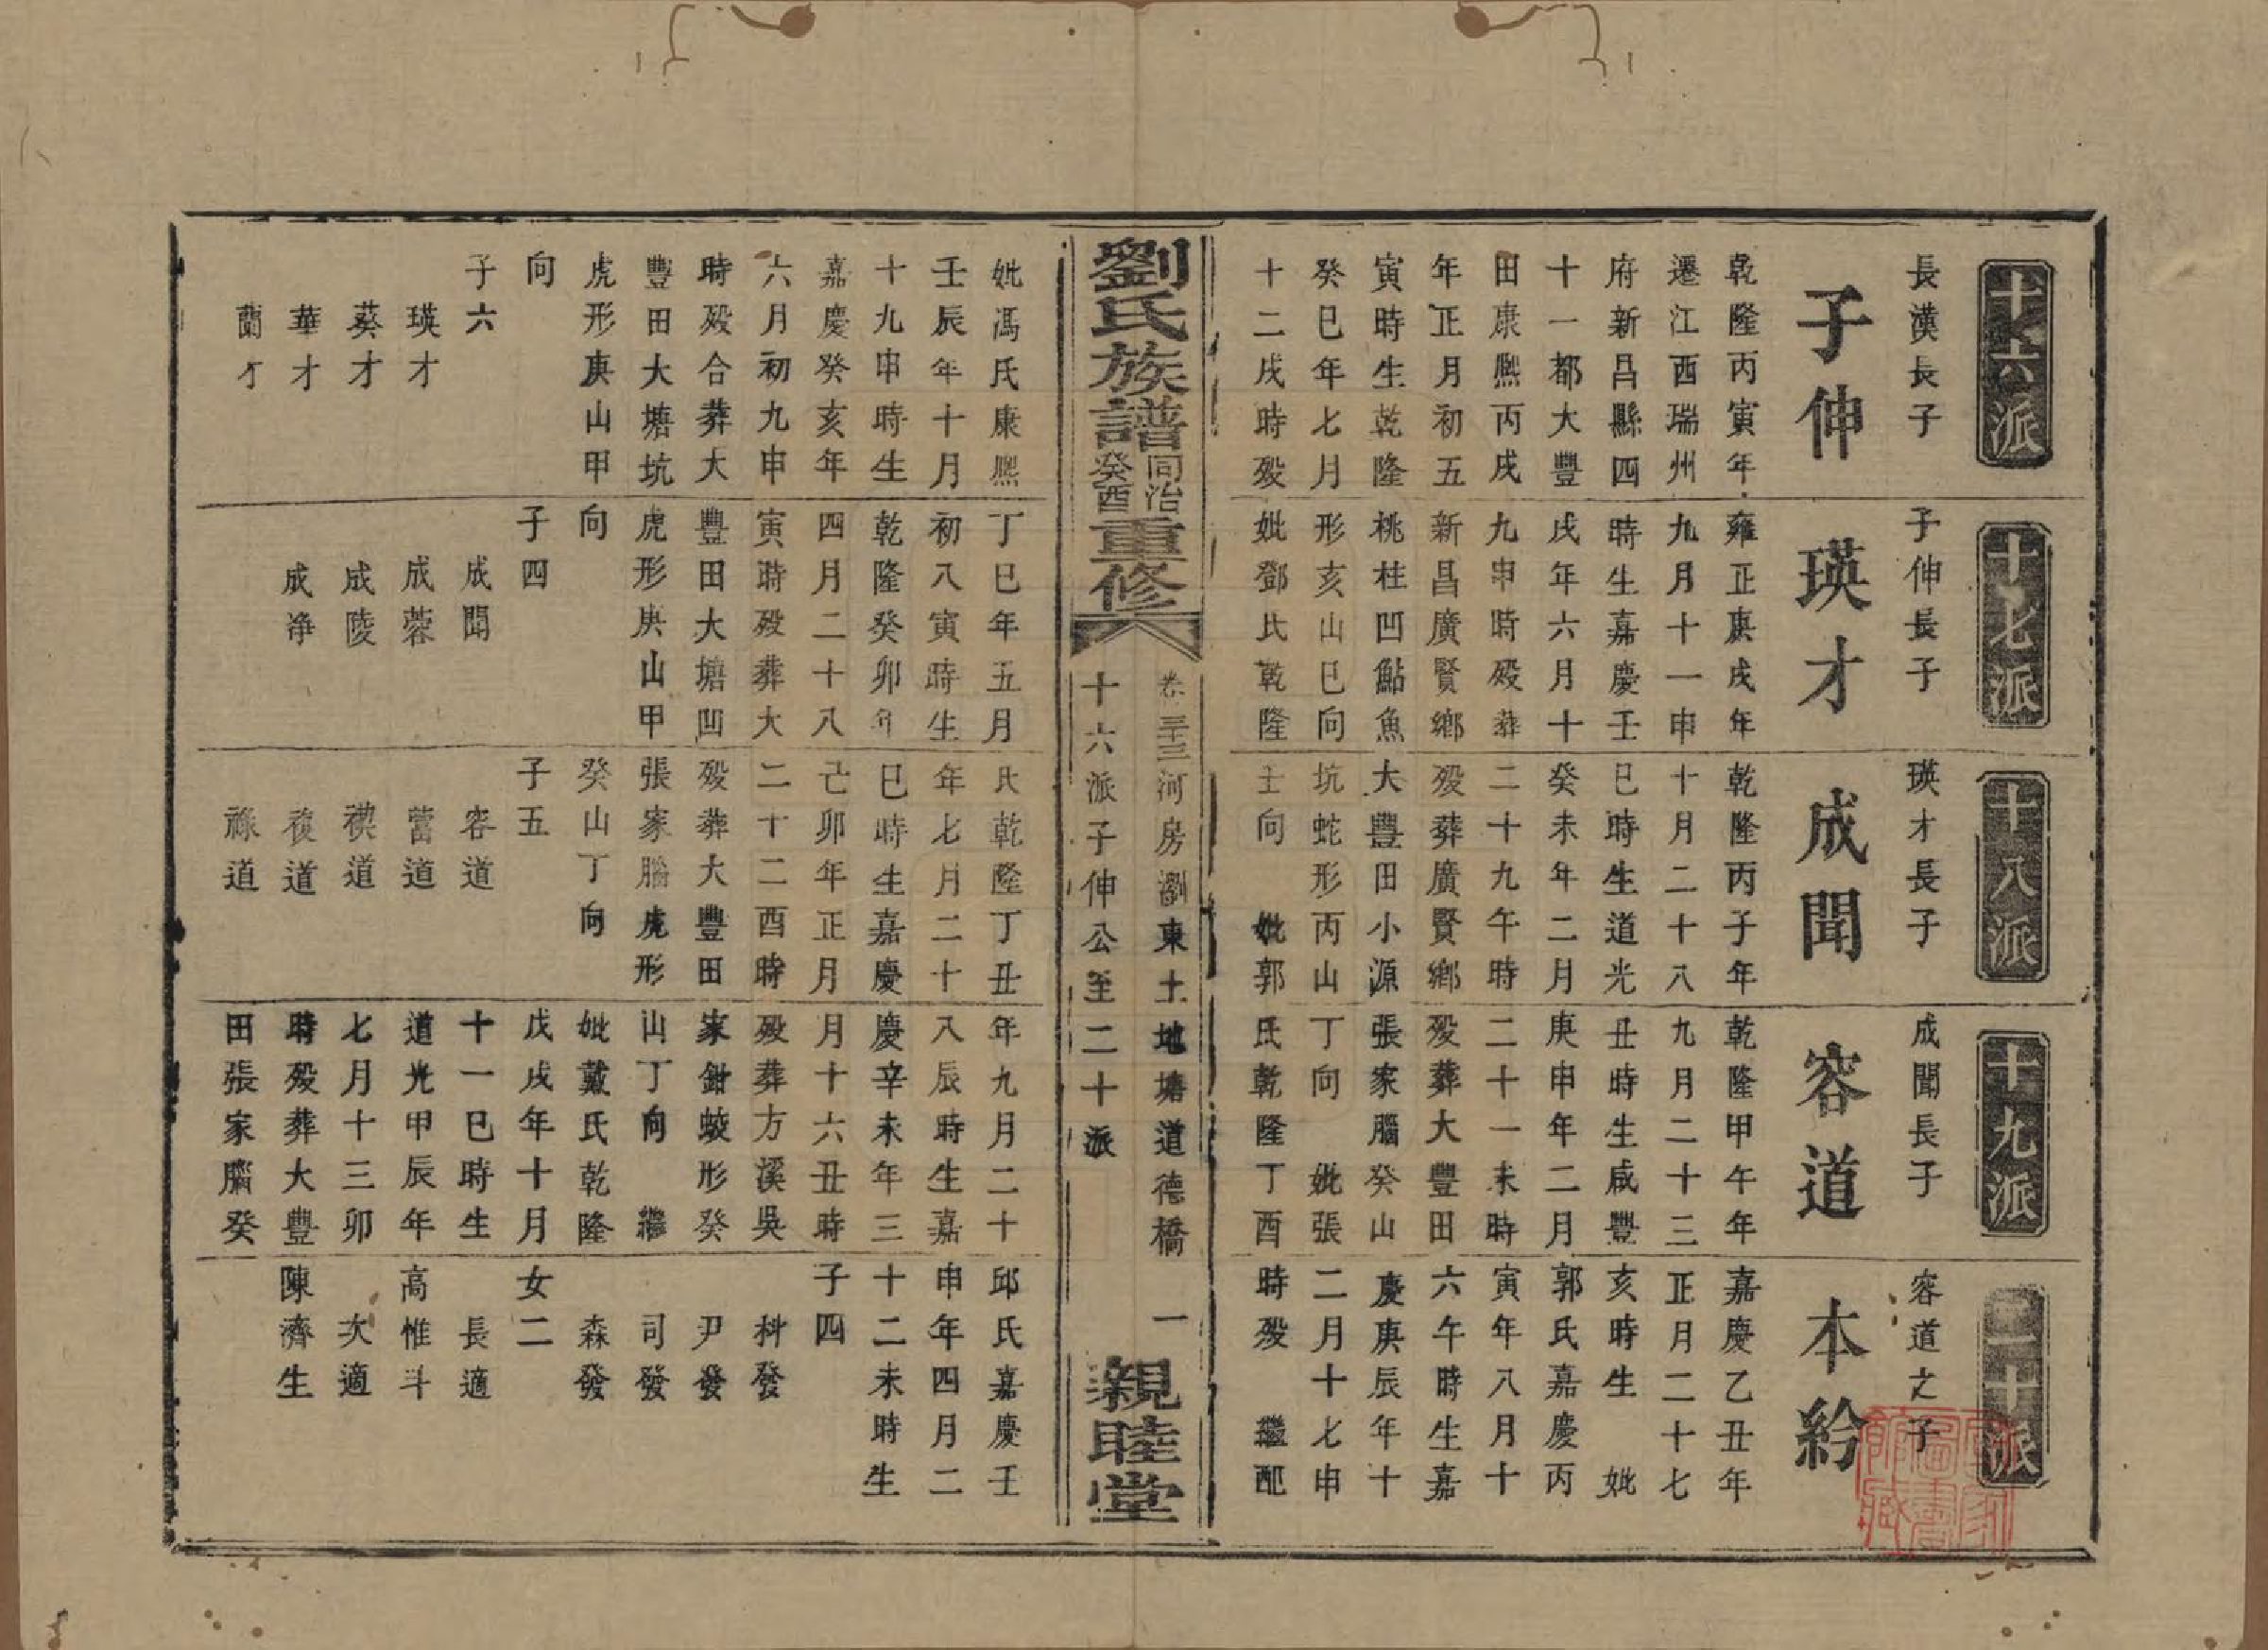 十六派
長漢長子
子伸
乾隆丙寅年
遷江西瑞州
府新昌縣四
十一都大豐
田康熙丙戌
年正月初五
寅時生乾隆
癸巳年七月
十二戌時殁
十七派
子伸長子
瑛才
雍正庚戌年
九月十一申
時生嘉慶壬
戌年六月十
九申時殁葬
新昌廣賢鄉
桃桂凹鮎魚
形亥山巳向
妣鄧氏乾隆
十八派
瑛才長子
成聞
乾隆丙子年
十月二十八
巳時生道光
癸未年二月
二十九午時
殁葬廣賢鄉
大豐田小源
坑蛇形丙山
壬向 妣郭
十九派
成聞長子
容道
乾隆甲午年
九月二十三
丑時生咸豐
庚申年二月
二十一未時
殁葬大豐田
張家腦癸山
丁向 妣張
氏乾隆丁酉
二十派
容道之子
本給
嘉慶乙丑年
正月二十七
亥時生 妣
郭氏嘉慶丙
寅年八月十
六午時生嘉
慶庚辰年十
二月十七申
時殁 繼配
劉氏族譜同治癸酉重修
卷三十三河房瀏東土地塘道德橋 一
十六派子伸公至二十派
親睦堂
妣馮氏康熙
壬辰年十月
十九申時生
嘉慶癸亥年
六月初九申
時殁合葬大
豐田大塘坑
虎形庚山甲
向
子六
瑛才
葵才
華才
蘭才
丁巳年五月
初八寅時生
乾隆癸卯年
四月二十八
寅時殁葬大
豐田大塘凹
虎形庚山甲
向
子四
成聞
成蓉
成陵
成净
氏乾隆丁丑
年七月二十
巳時生嘉慶
己卯年正月
二十二酉時
殁葬大豐田
張家腦虎形
癸山丁向
子五
容道
當道
禊道
複道
祿道
年九月二十
八辰時生嘉
慶辛未年三
月十六丑時
殁葬方溪吳
家鉗蛟形癸
山丁向 繼
妣戴氏乾隆
戊戌年十月
十一巳時生
道光甲辰年
七月十三卯
時殁葬大豐
田張家腦癸
邱氏嘉慶壬
申年四月二
十二未時生
子四
科發
尹發
司發
森發
女二
長適
高惟斗
次適
陳濟生